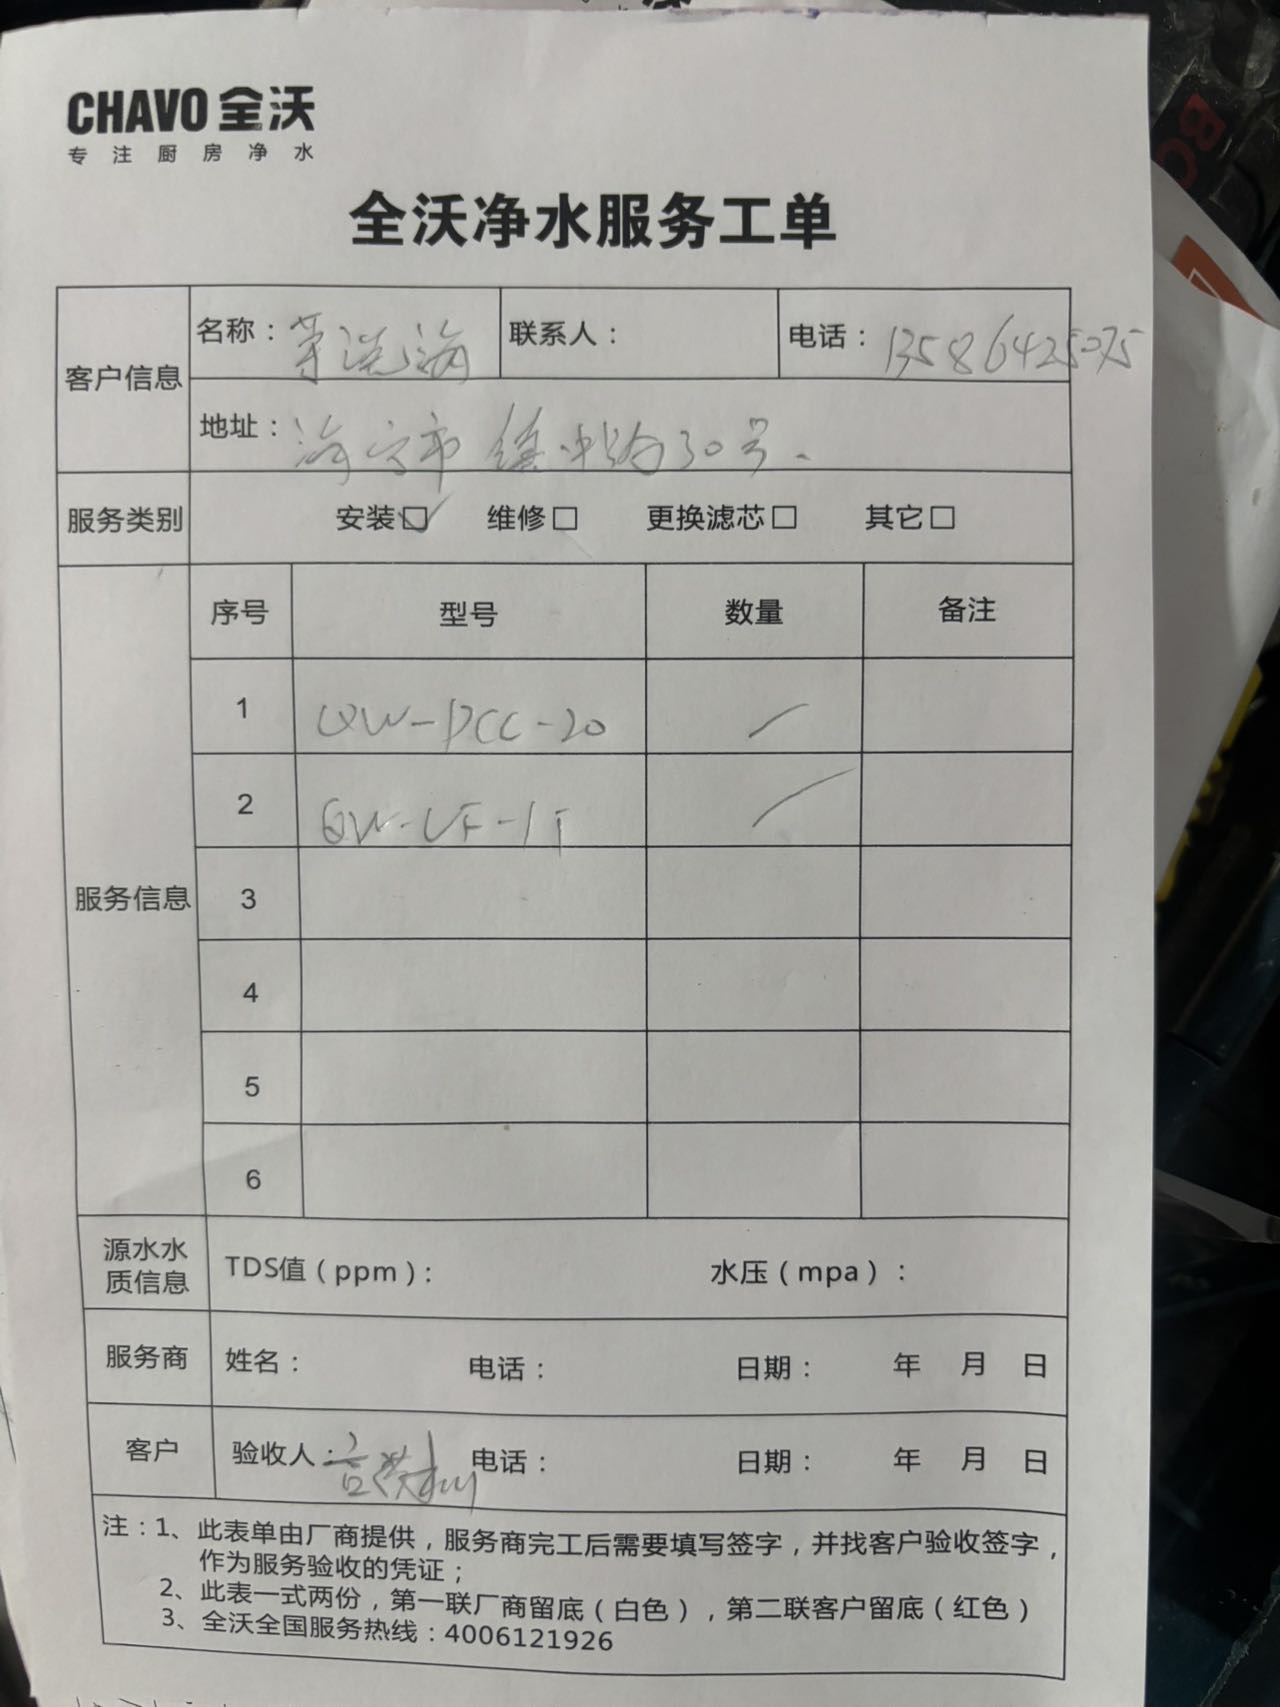 CHAVO 全沃
专注厨房净水
全沃净水服务工单
客户信息
名称：
联系人：
电话：13586425075
地址：海宁市 路30号
服务类别
安装☑ 维修□ 更换滤芯□ 其它□
服务信息
序号 型号 数量 备注
1 QW-DCC-20
2 QW-UF-1T
3
4
5
6
源水水质信息
TDS值（ppm）： 水压（mpa）：
服务商 姓名： 电话： 日期： 年 月 日
客户 验收人： 电话： 日期： 年 月 日
注：1、此表单由厂商提供，服务商完工后需要填写签字，并找客户验收签字，
作为服务验收的凭证；
2、此表一式两份，第一联厂商留底（白色），第二联客户留底（红色）
3、全沃全国服务热线：4006121926